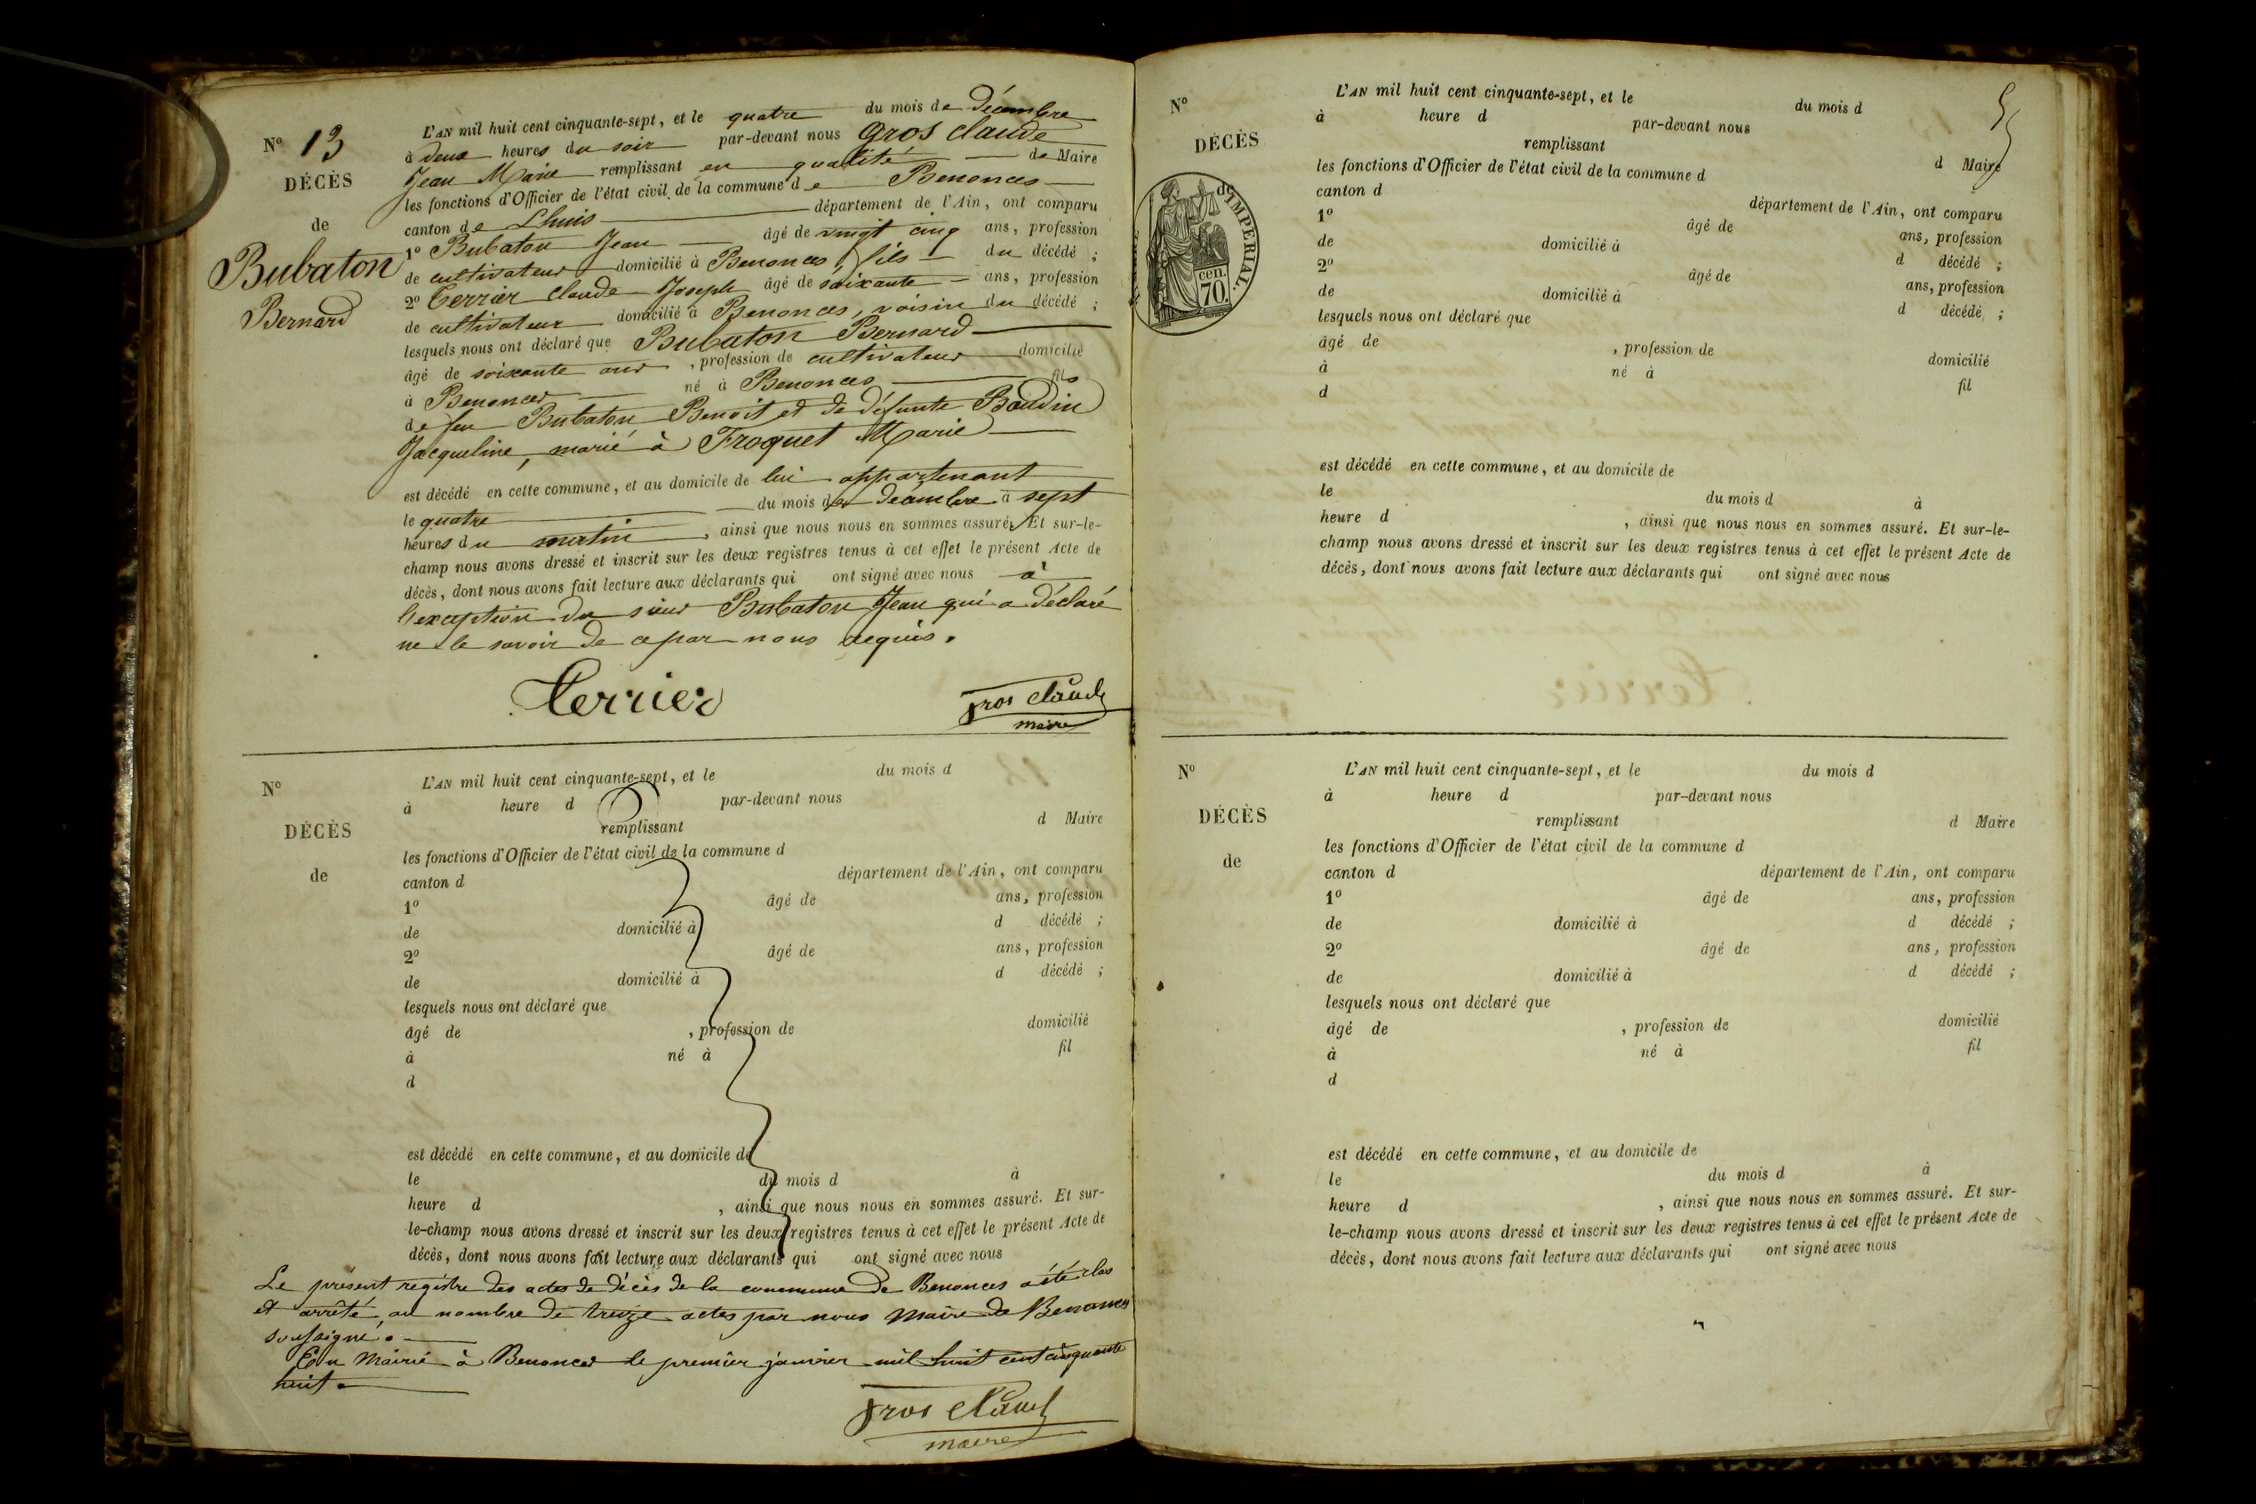 Nº 13
DÉCÈS
de
Bubaton
Bernard
L'AN mil huit cent cinquante-sept, et le quatre du mois de décembre
à deux heures du soir par-devant nous Gros Claude
Jean Marie remplissant en qualité de Maire
les fonctions d'Officier de l'état civil de la commune de Benonces
canton de Lhuis département de l'Ain, ont comparu
1º Bubaton Jean âgé de vingt cinq ans, profession
de cultivateur domicilié à Benonces, fils du décédé ;
2º Terrier Claude Joseph âgé de soixante ans, profession
de cultivateur domicilié à Benonces, voisin du décédé ;
lesquels nous ont déclaré que Bubaton Bernard
âgé de soixante ans, profession de cultivateur domicilié
à Benonces né à Benonces fils
de feu Bubaton Benoit et de défunte Baudin
Jacqueline, marié à Froquet Marie
est décédé en cette commune, et au domicile de lui appartenant
le quatre du mois de decembre à sept
heures du matin, ainsi que nous nous en sommes assuré. Et sur-le-
champ nous avons dressé et inscrit sur les deux registres tenus à cet effet le présent Acte de
décès, dont nous avons fait lecture aux déclarants qui ont signé avec nous à
l'exception du sieur Bubaton Jean qui a déclaré
ne le savoir de ce par nous requis.
Terrier
Gros Claude
maire
Nº
DÉCÈS
de
L'AN mil huit cent cinquante-sept, et le du mois d
à heure d par-devant nous
remplissant d Maire
les fonctions d'Officier de l'état civil de la commune d
canton d département de l'Ain, ont comparu
1º âgé de ans, profession
de domicilié à d décédé ;
2º âgé de ans, profession
de domicilié à d décédé ;
lesquels nous ont déclaré que
âgé de , profession de domicilié
à né à fil
d
est décédé en cette commune, et au domicile de
le du mois d à
heure d , ainsi que nous nous en sommes assuré. Et sur-
le-champ nous avons dressé et inscrit sur les deux registres tenus à cet effet le présent Acte de
décès, dont nous avons fait lecture aux déclarants qui ont signé avec nous
Le présent registre des actes de décès de la commune de Benonces a été clos
et arrêté, au nombre de treize actes par nous Maire de Benonces
soussigné.
En Mairie à Benonces le premier janvier mil huit cent cinquante
huit.
Gros Claude
maire
Nº
DÉCÈS
de
L'AN mil huit cent cinquante-sept, et le du mois d
à heure d par-devant nous
remplissant d Maire
les fonctions d'Officier de l'état civil de la commune d
canton d département de l'Ain, ont comparu
1º âgé de ans, profession
de domicilié à d décédé ;
2º âgé de ans, profession
de domicilié à d décédé ;
lesquels nous ont déclaré que
âgé de , profession de domicilié
à né à fil
d
IMPERIAL.
cen.
70.
est décédé en cette commune, et au domicile de
le du mois d à
heure d , ainsi que nous nous en sommes assuré. Et sur-le-
champ nous avons dressé et inscrit sur les deux registres tenus à cet effet le présent Acte de
décès, dont nous avons fait lecture aux déclarants qui ont signé avec nous
Nº
DÉCÈS
de
L'AN mil huit cent cinquante-sept, et le du mois d
à heure d par-devant nous
remplissant d Maire
les fonctions d'Officier de l'état civil de la commune d
canton d département de l'Ain, ont comparu
1º âgé de ans, profession
de domicilié à d décédé ;
2º âgé de ans, profession
de domicilié à d décédé ;
lesquels nous ont déclaré que
âgé de , profession de domicilié
à né à fil
d
est décédé en cette commune, et au domicile de
le du mois d à
heure d , ainsi que nous nous en sommes assuré. Et sur-
le-champ nous avons dressé et inscrit sur les deux registres tenus à cet effet le présent Acte de
décès, dont nous avons fait lecture aux déclarants qui ont signé avec nous